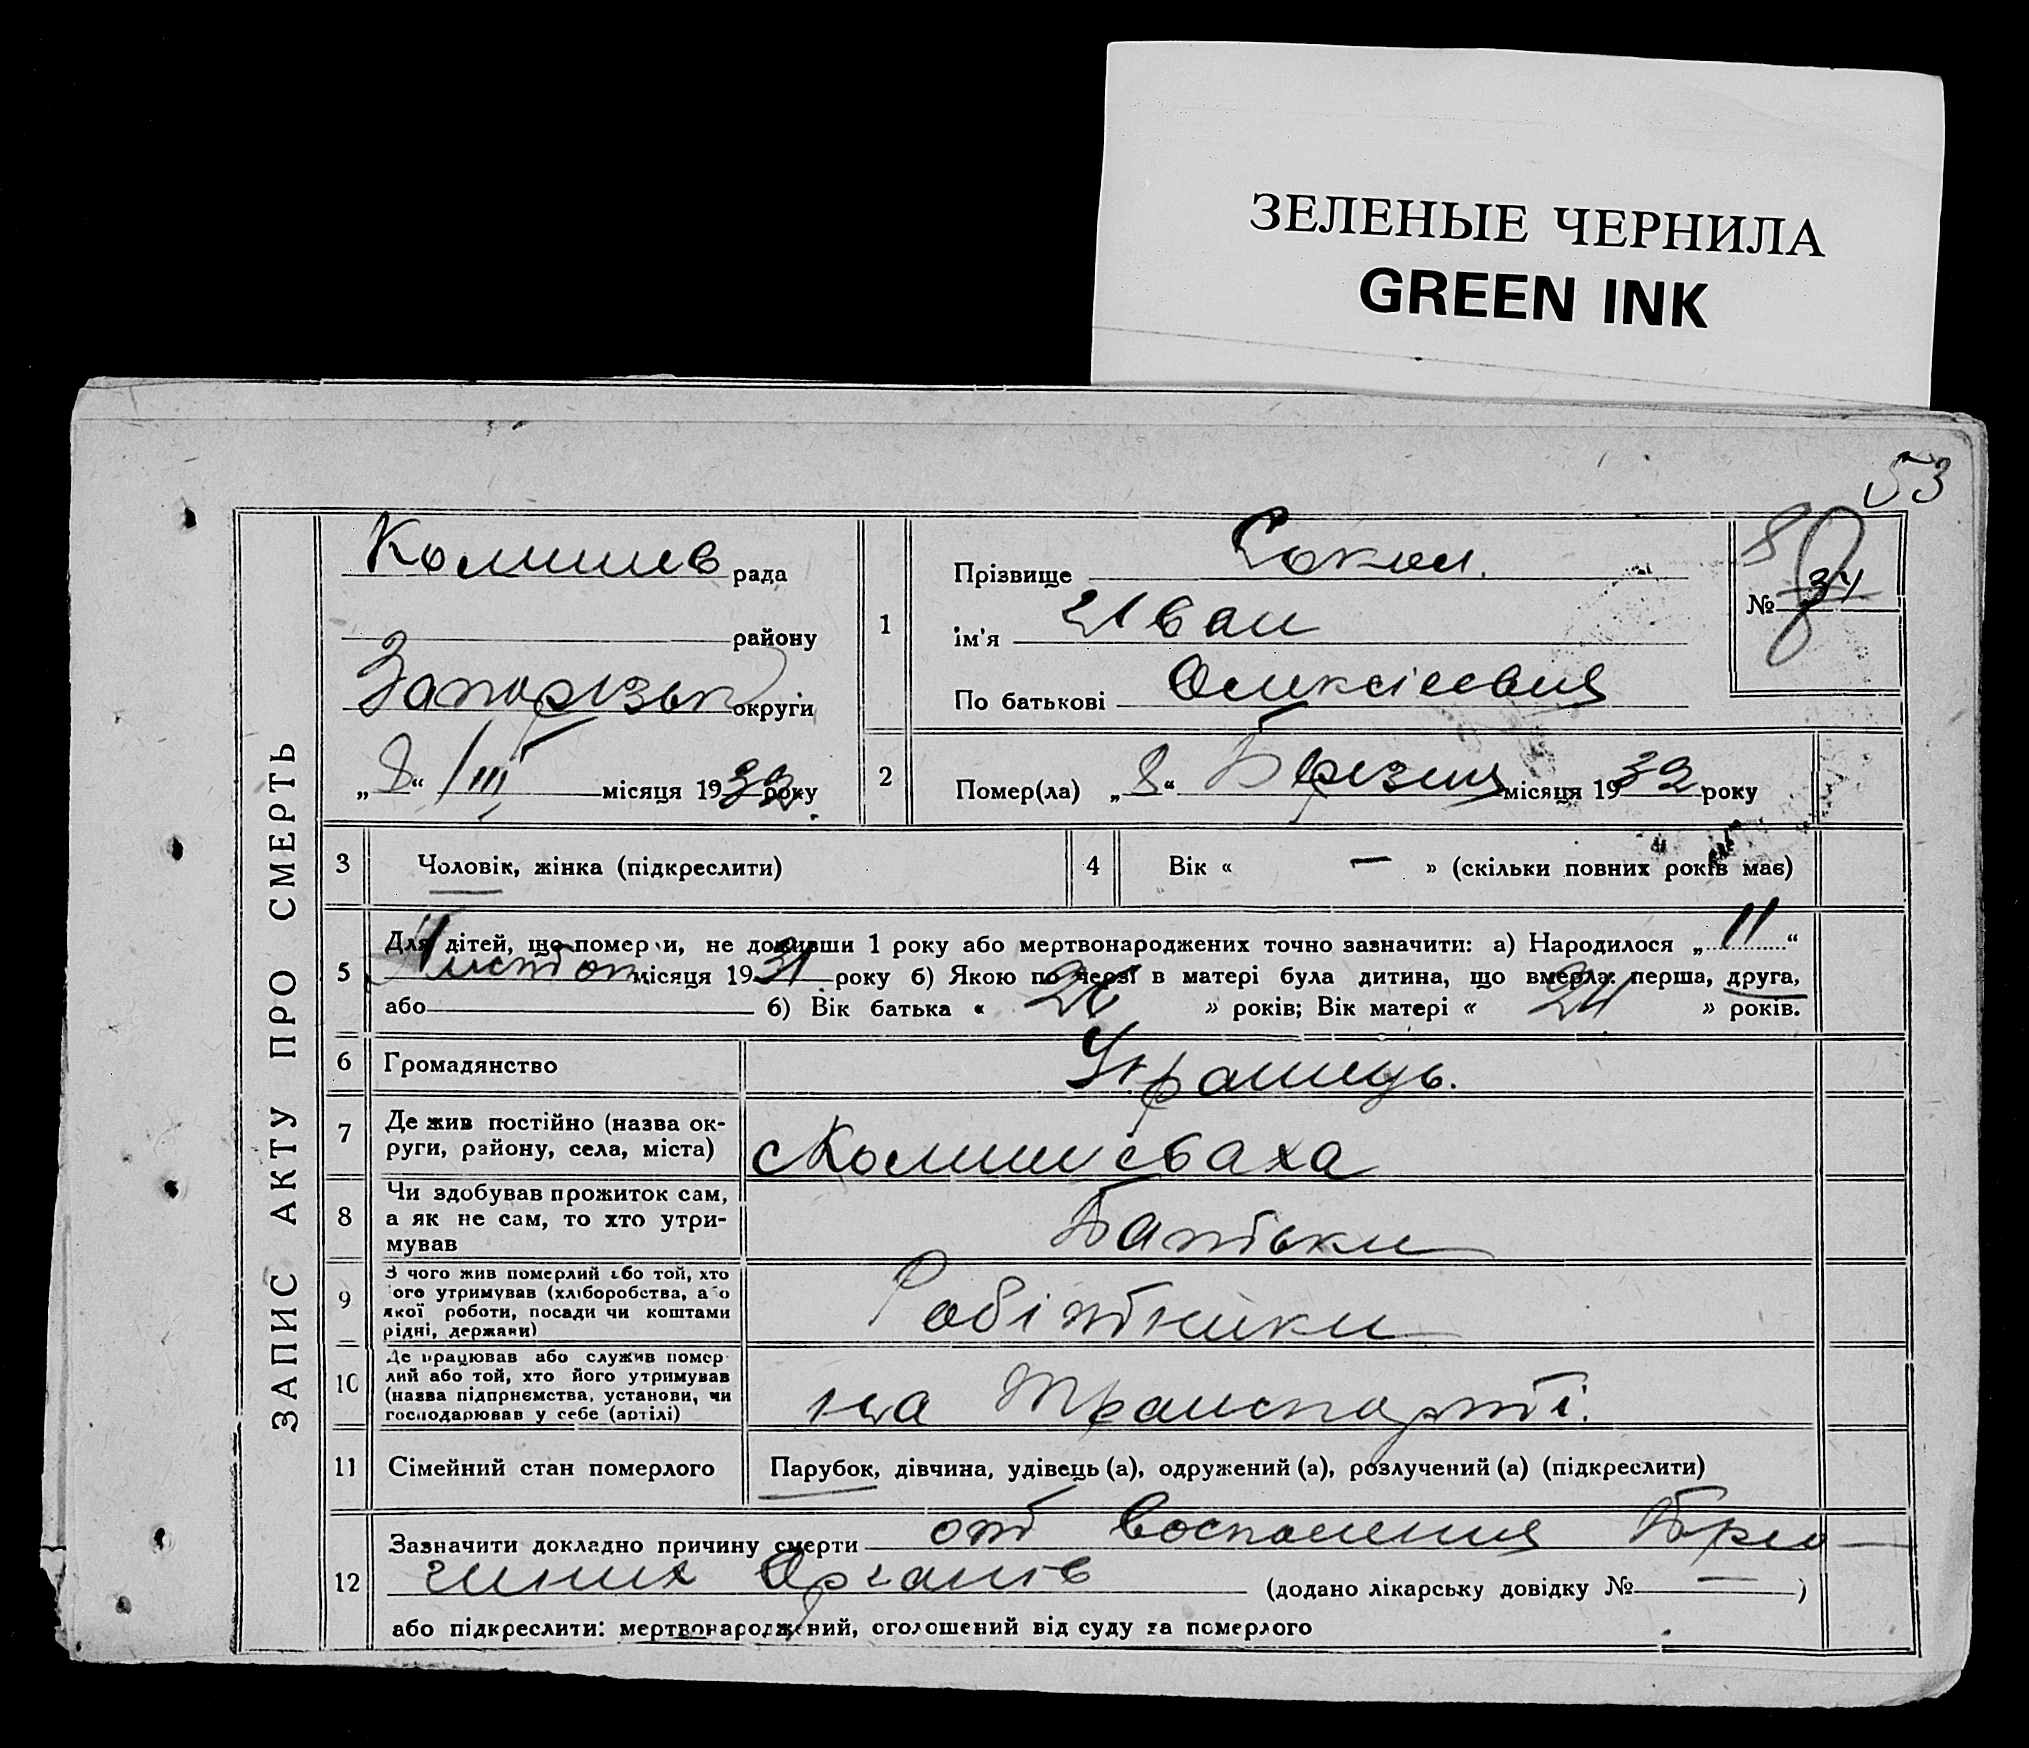 ЗЕЛЕНЫЕ ЧЕРНИЛА
GREEN INK
53
ЗАПИС АКТУ ПРО СМЕРТЬ
Комишев рада
району
Запорізьк округи
„8“ /III місяця 1932 року
1
Прізвище Сокол.
ім'я Иван
По батькові Олексіевич
№ 34
2 Помер(ла) „8“ Березня місяця 1932 року
3 Чоловік, жінка (підкреслити)
4 Вік « — » (скільки повних років має)
5 Для дітей, що померли, не доживши 1 року або мертвонароджених точно зазначити: а) Народилося „11“
Листоп місяця 1931 року б) Якою по черзі в матері була дитина, що вмерла: перша, друга,
або б) Вік батька « 26 » років; Вік матері « 24 » років.
6 Громадянство Украинець.
7 Де жив постійно (назва ок-
руги, району, села, міста)
с Комишеваха
8 Чи здобував прожиток сам,
а як не сам, то хто утри-
мував
Батьки
9 З чого жив померлий або той, хто
його утримував (хліборобства, або
якої роботи, посади чи коштами
рідні, держави)
Робітники
10 Де працював або служив помер-
лий або той, хто його утримував
(назва підприємства, установи, чи
господарював у себе (артілі)
на Транспорті.
11 Сімейний стан померлого Парубок, дівчина, удівець (а), одружений (а), розлучений (а) (підкреслити)
12 Зазначити докладно причину смерти от воспаления
Органів (додано лікарську довідку № — )
або підкреслити: мертвонароджений, оголошений від суду за померлого